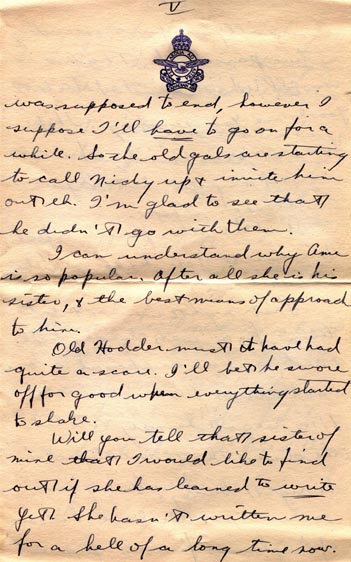 V
was supposed to end, however I
suppose I'll have to go on for a
while. So the old gals are starting
to call Nidy up & invite him
out eh. I'm glad to see that
he didn't go with them.
I can understand why Ame
is so popular. After all she is his
sister, & the best means of approach
to him.
Old Hodder must of have had
quite a scare. I'll bet he swore
off for good when everything started
to shake.
Will you tell that sister of
mine that I would like to find
out if she has learned to write
yet. She hasn't written me
for a hell of a long time now.